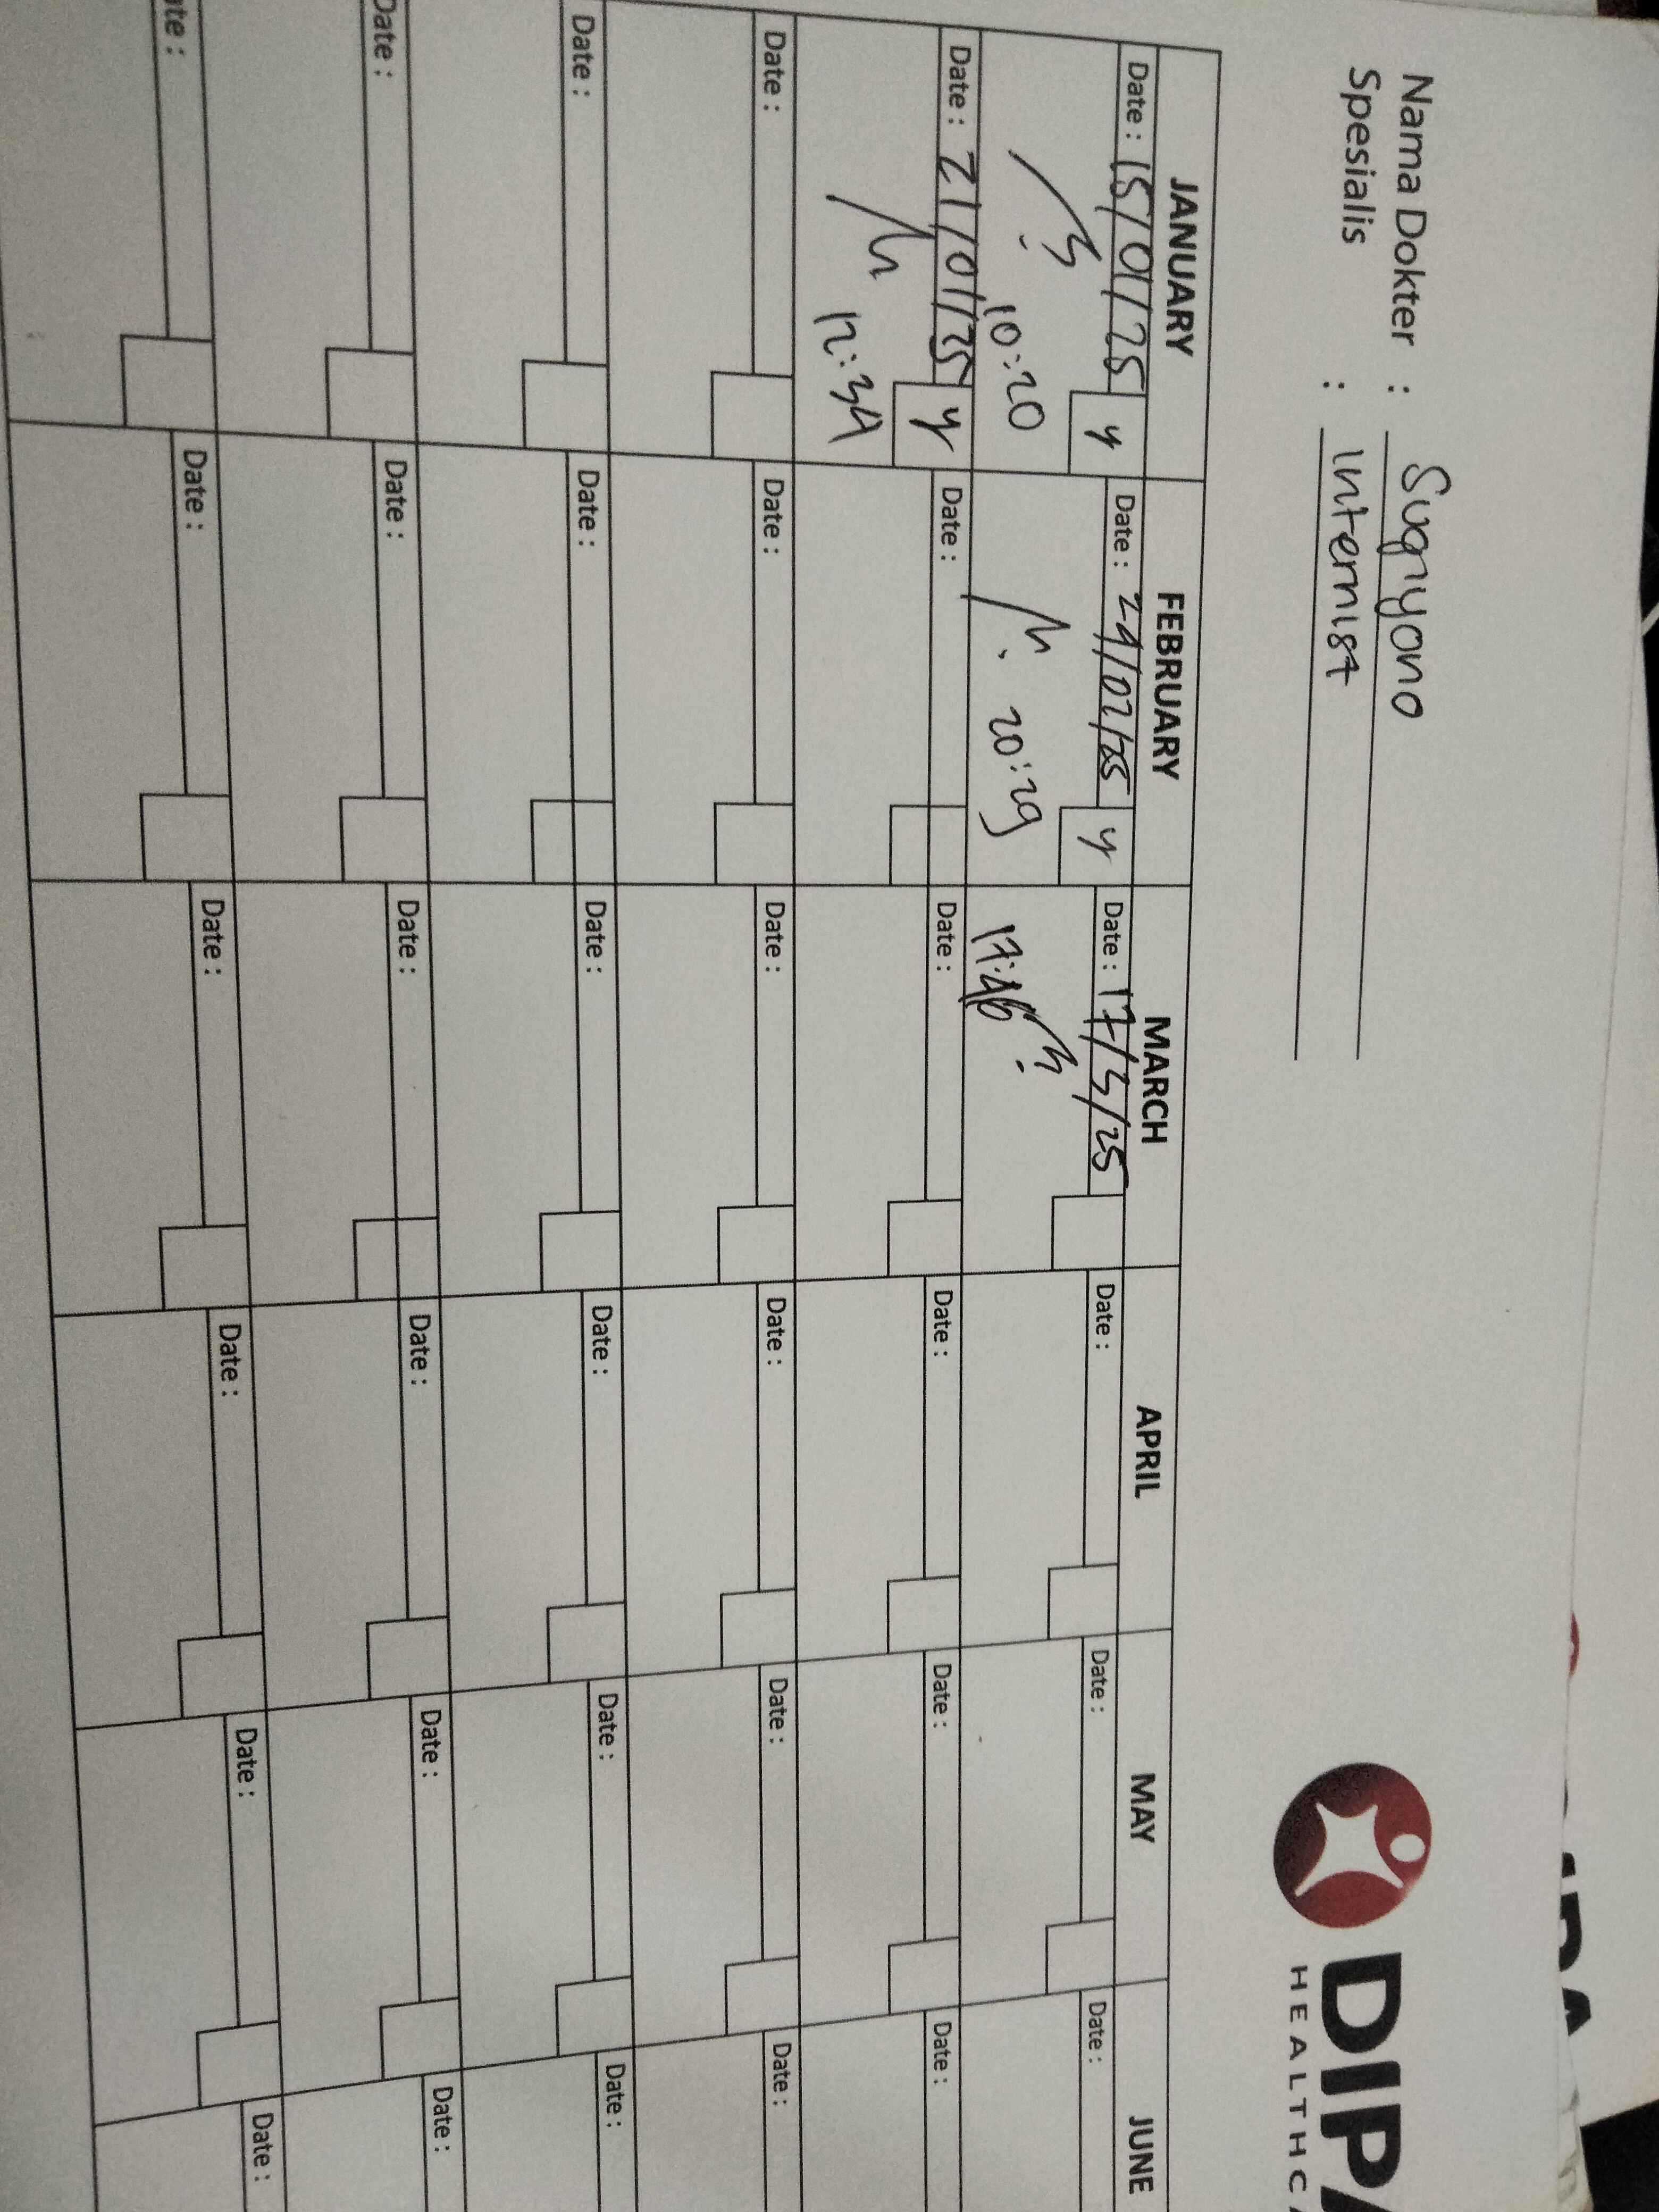 Nama Dokter : Sugiyono
Spesialis : Internist
DIPA
HEALTHCA
JANUARY FEBRUARY MARCH APRIL MAY JUNE
Date : 15/01/25 y Date : 24/02/25 y Date : 17/3/25 Date : Date : Date :
10:20 20:29 17:46
Date : 21/01/25 y Date : Date : Date : Date : Date :
12:34
Date : Date : Date : Date : Date : Date :
Date : Date : Date : Date : Date : Date :
Date : Date : Date : Date : Date : Date :
ate : Date : Date : Date : Date : Date :